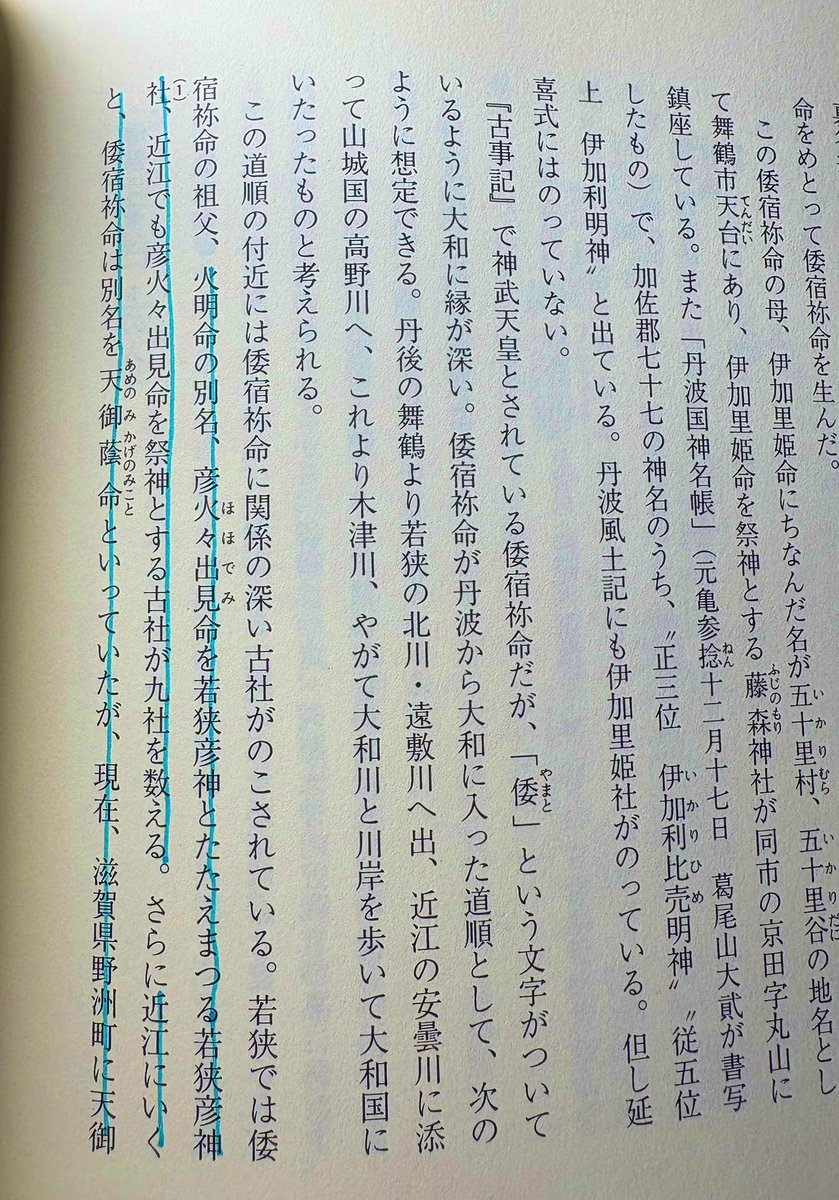 命をめとって倭宿祢命を生んだ。
この倭宿祢命の母、伊加里姫命にちなんだ名が五十里村、五十里谷の地名とし
て舞鶴市天台にあり、伊加里姫命を祭神とする藤森神社が同市の京田字丸山に
鎮座している。また「丹波国神名帳」（元亀参捻十二月十七日　葛尾山大貮が書写
したもの）で、加佐郡七十七の神名のうち、〝正三位　伊加利比売明神〟〝従五位
上　伊加利明神〟と出ている。丹波風土記にも伊加里姫社がのっている。但し延
喜式にはのっていない。
『古事記』で神武天皇とされている倭宿祢命だが、「倭」という文字がついて
いるように大和に縁が深い。倭宿祢命が丹波から大和に入った道順として、次の
ように想定できる。丹後の舞鶴より若狭の北川・遠敷川へ出、近江の安曇川に添
って山城国の高野川へ、これより木津川、やがて大和川と川岸を歩いて大和国に
いたったものと考えられる。
この道順の付近には倭宿祢命に関係の深い古社がのこされている。若狭では倭
宿祢命の祖父、火明命の別名、彦火々出見命を若狭彦神とたたえまつる若狭彦神
社、(1)近江でも彦火々出見命を祭神とする古社が九社を数える。さらに近江にいく
と、倭宿祢命は別名を天御蔭命といっていたが、現在、滋賀県野洲町に天御